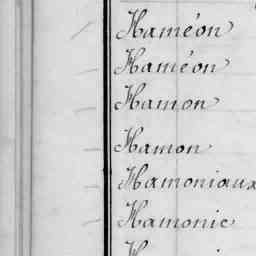 Haméon
Haméon
Hamon
Hamon
Hamoniaux
Hamonic